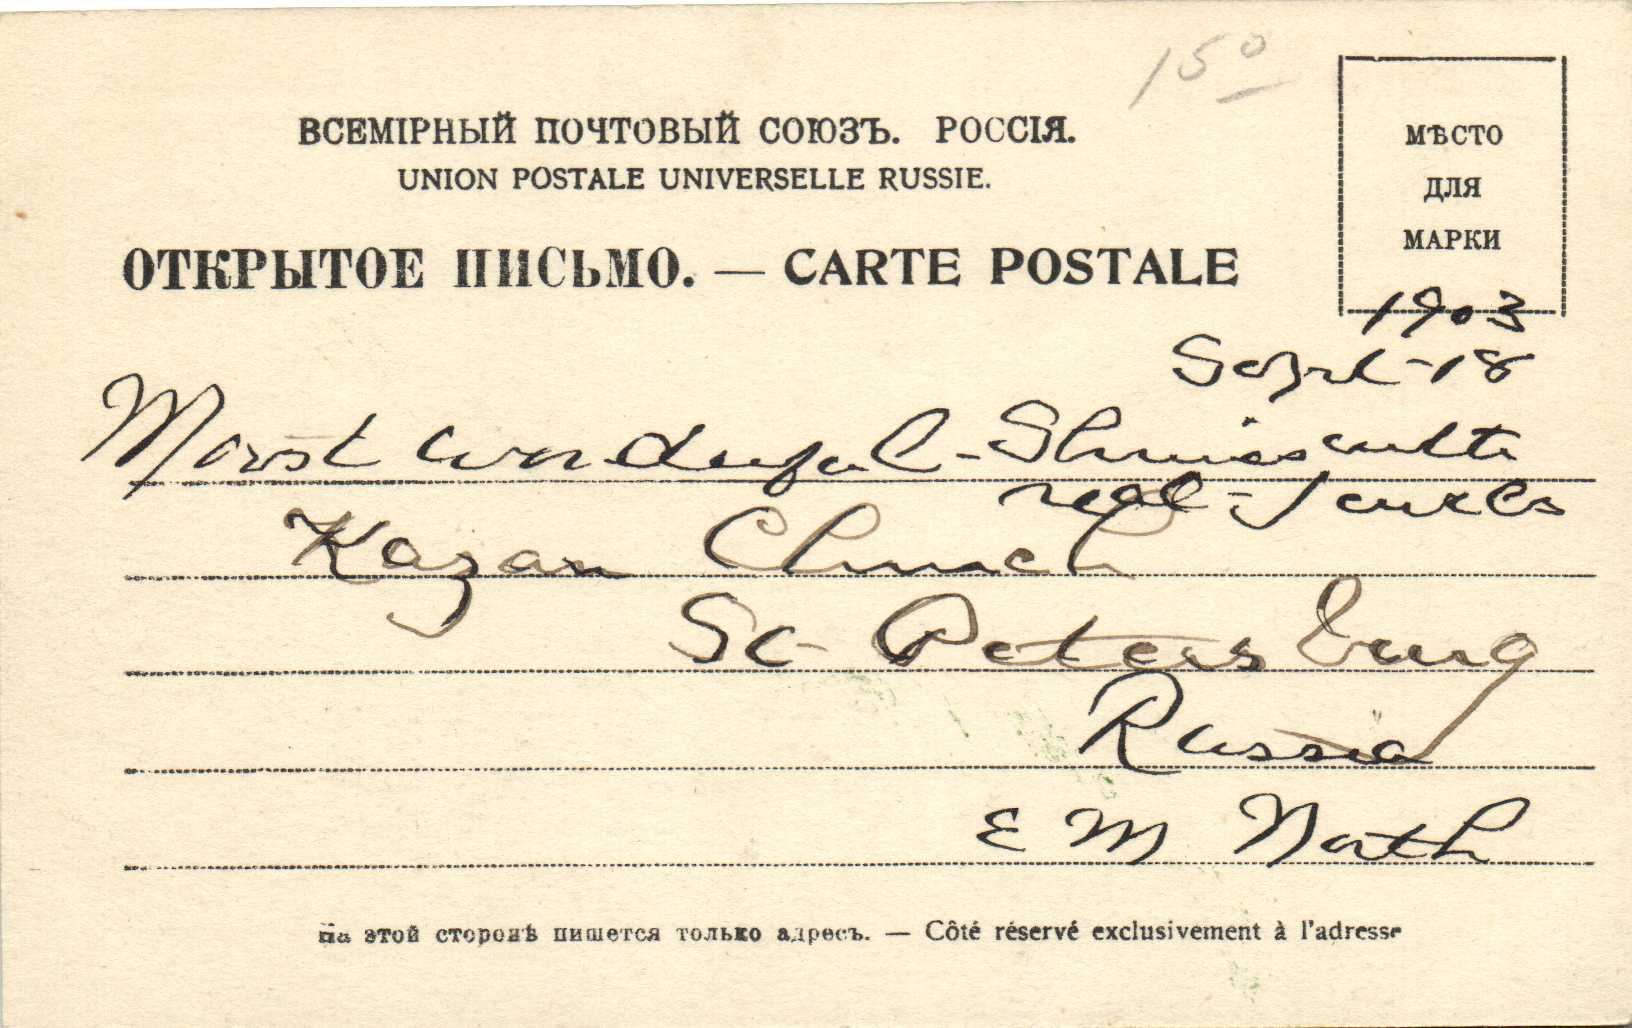 15⁰
ВСЕМІРНЫЙ ПОЧТОВЫЙ СОЮЗЪ. РОССІЯ.
UNION POSTALE UNIVERSELLE RUSSIE.
МѢСТО
ДЛЯ
МАРКИ
ОТКРЫТОЕ ПИСЬМО. — CARTE POSTALE
1903
Sept-18
Most wonderful - Shrines with
real - Jewels
Kazan Church
St- Petersburg
Russia
E M North
На этой сторонѣ пишется только адресъ. — Côté réservé exclusivement à l'adresse